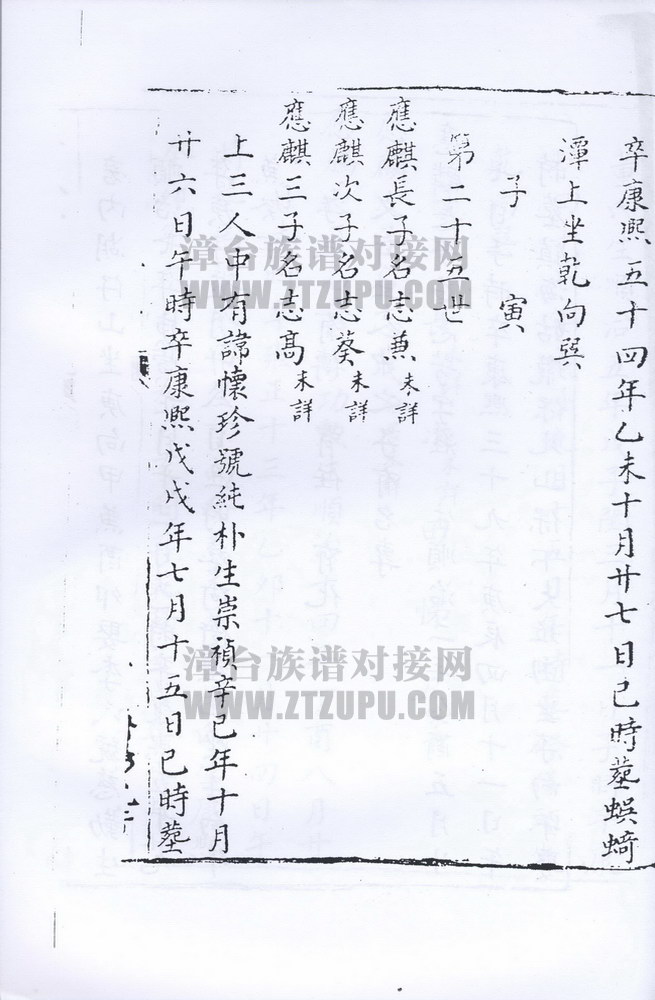 卒康熙五十四年乙未十月廿七日巳時塟蜈蜞
潭上坐乾向巽
子寅
第二十五世
應麒長子名志兼未詳
應麒次子名志葵未詳
應麒三子名志高未詳
上三人中有諱懷珍號純朴生崇禎辛巳年十月
廿六日午時卒康熙戊戌年七月十五日巳時塟
漳台族谱对接网
WWW.ZTZUPU.COM
漳台族谱对接网
WWW.ZTZUPU.COM